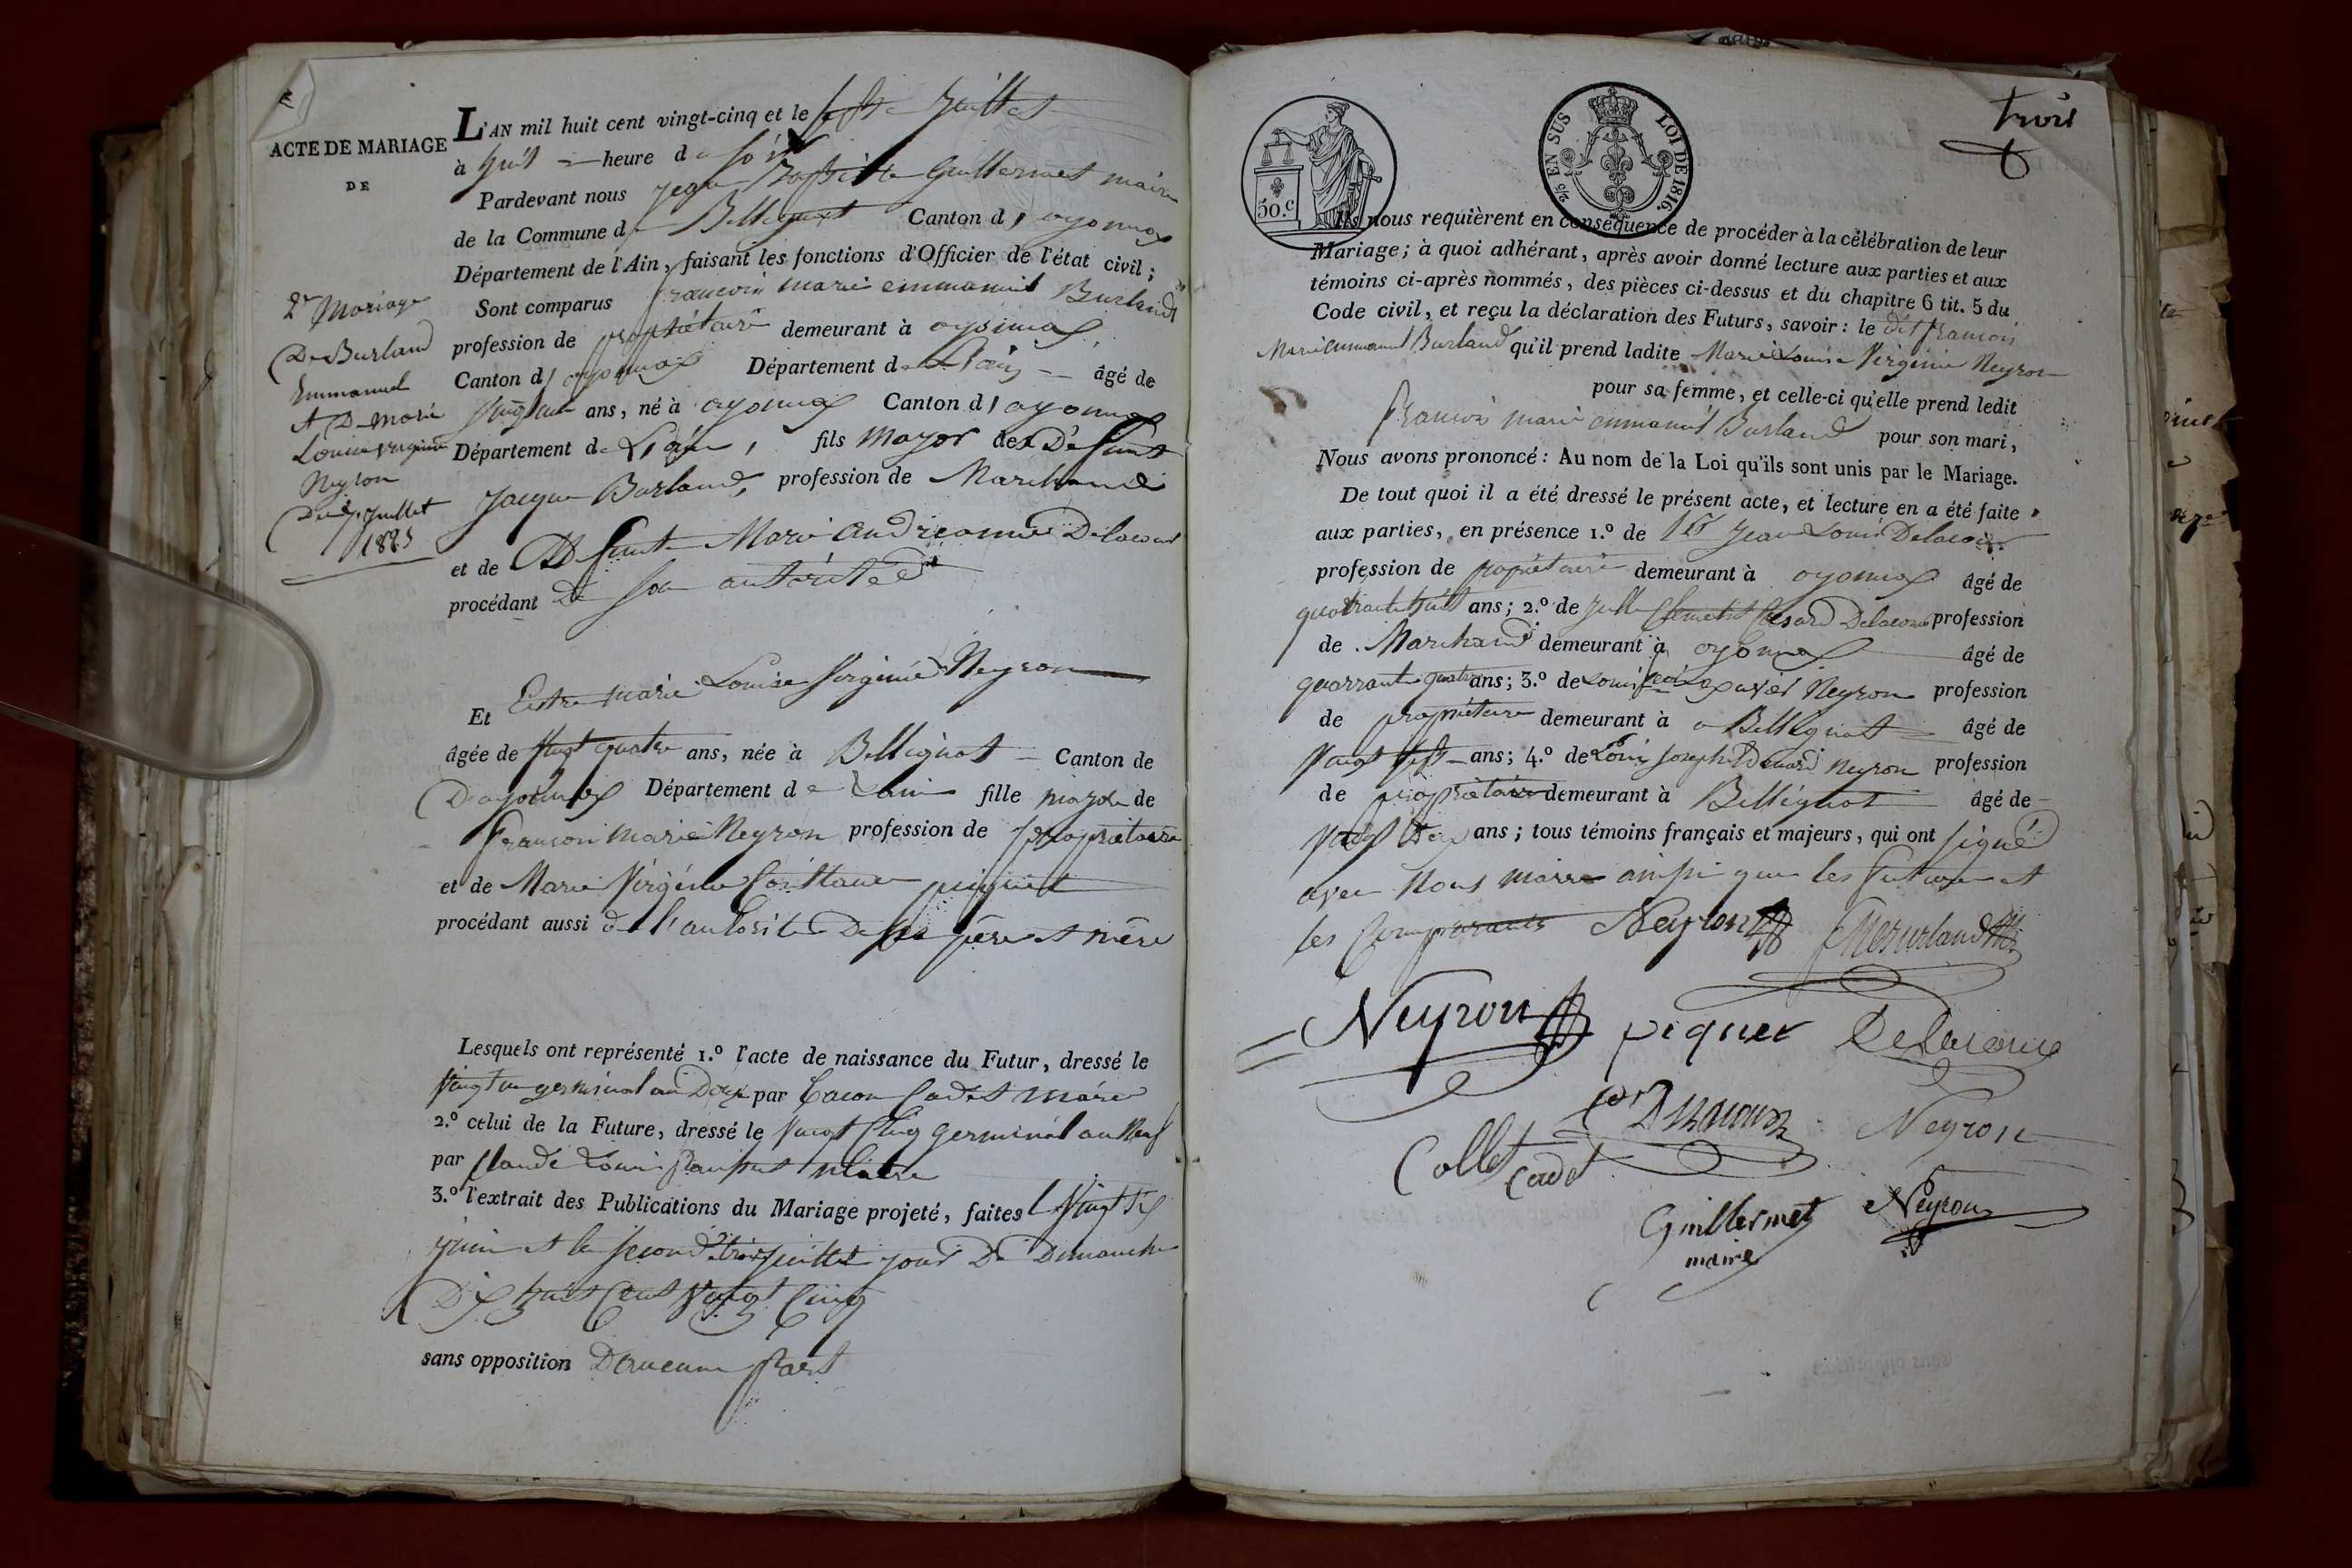 ACTE DE MARIAGE
DE
2e Mariage
De Burland
Emmanuel
et De marie
Louise virginie
Neyron
Du 7 Juillet
1825
L'AN mil huit cent vingt-cinq et le sept Juillet
à huit heure du soir
Pardevant nous Jean Baptiste Guillermet maire
de la Commune de Bellignat Canton d'oyonnax
Département de l'Ain, faisant les fonctions d'Officier de l'état civil;
Sont comparus francois marie emmanuel Burland
profession de propriétaire demeurant à oyonnax
Canton d'oyonnax Département de L'ain âgé de
ans, né à oyonnax Canton d'oyonnax
Département de L'ain, fils mayor de Defunt
Jacque Burland, profession de Marchand
et de Defunte Marie Delacour
procédant De son autorité
Et Marie Louise Virginie Neyron
âgée de vingt quatre ans, née à Bellignat Canton de
D'ayonnax Département de Lain fille mayor de
francois marie Neyron profession de propriétaire
et de Marie Virginie Constance piquet
procédant aussi de l'autorité De ses père et mère
Lesquels ont représenté 1.º l'acte de naissance du Futur, dressé le
vingt un germinal an Deux par Cadet maire
2.º celui de la Future, dressé le vingt Cinq germinal an Neuf
par Claude Louis
3.º l'extrait des Publications du Mariage projeté, faites le vingt six
juin et la second trois juillet jour De Dimanche
Dix huit Cent Vingt Cinq
sans opposition D'aucune part
trois
50.c
2/5 EN SUS LOI DE 1816.
Ils nous requièrent en conséquence de procéder à la célébration de leur
Mariage; à quoi adhérant, après avoir donné lecture aux parties et aux
témoins ci-après nommés, des pièces ci-dessus et du chapitre 6 tit. 5 du
Code civil, et reçu la déclaration des Futurs, savoir: le dit francois
Marie emmanuel Burland qu'il prend ladite Marie Louise Virginie Neyron
pour sa femme, et celle-ci qu'elle prend ledit
francois marie emmanuel Burland pour son mari,
Nous avons prononcé: Au nom de la Loi qu'ils sont unis par le Mariage.
De tout quoi il a été dressé le présent acte, et lecture en a été faite
aux parties, en présence 1.º de Jean Louis Delacour
profession de propriétaire demeurant à oyonnax âgé de
quatrante huit ans; 2.º de Clement Cesard Delacour profession
de Marchand demeurant à oyonnax âgé de
quarrante quatre ans; 3.º de Louis xavier Neyron profession
de propriétaire demeurant à Bellignat âgé de
vingt sept ans; 4.º de Louis Joseph Neyron profession
de propriétaire demeurant à Bellignat âgé de
vingt ans; tous témoins français et majeurs, qui ont signé
avec Nous maire ainsi que les futures et
les Comparants Neyron
Neyron piquet Delacour
Neyron
Collet Cadet
Guillermet Neyron
maire